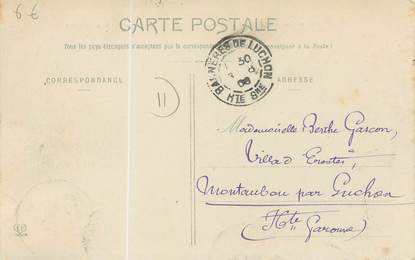 6 €
CARTE POSTALE
Tous les pays étrangers n'acceptent pas la correspondance à la Poste.)
CORRESPONDANCE
ADRESSE
BAGNÈRES DE LUCHON
08
HTE GNE
11
Mademoiselle Berthe Gascon,
Villa
Montauban par Luchon
(Hte Garonne)